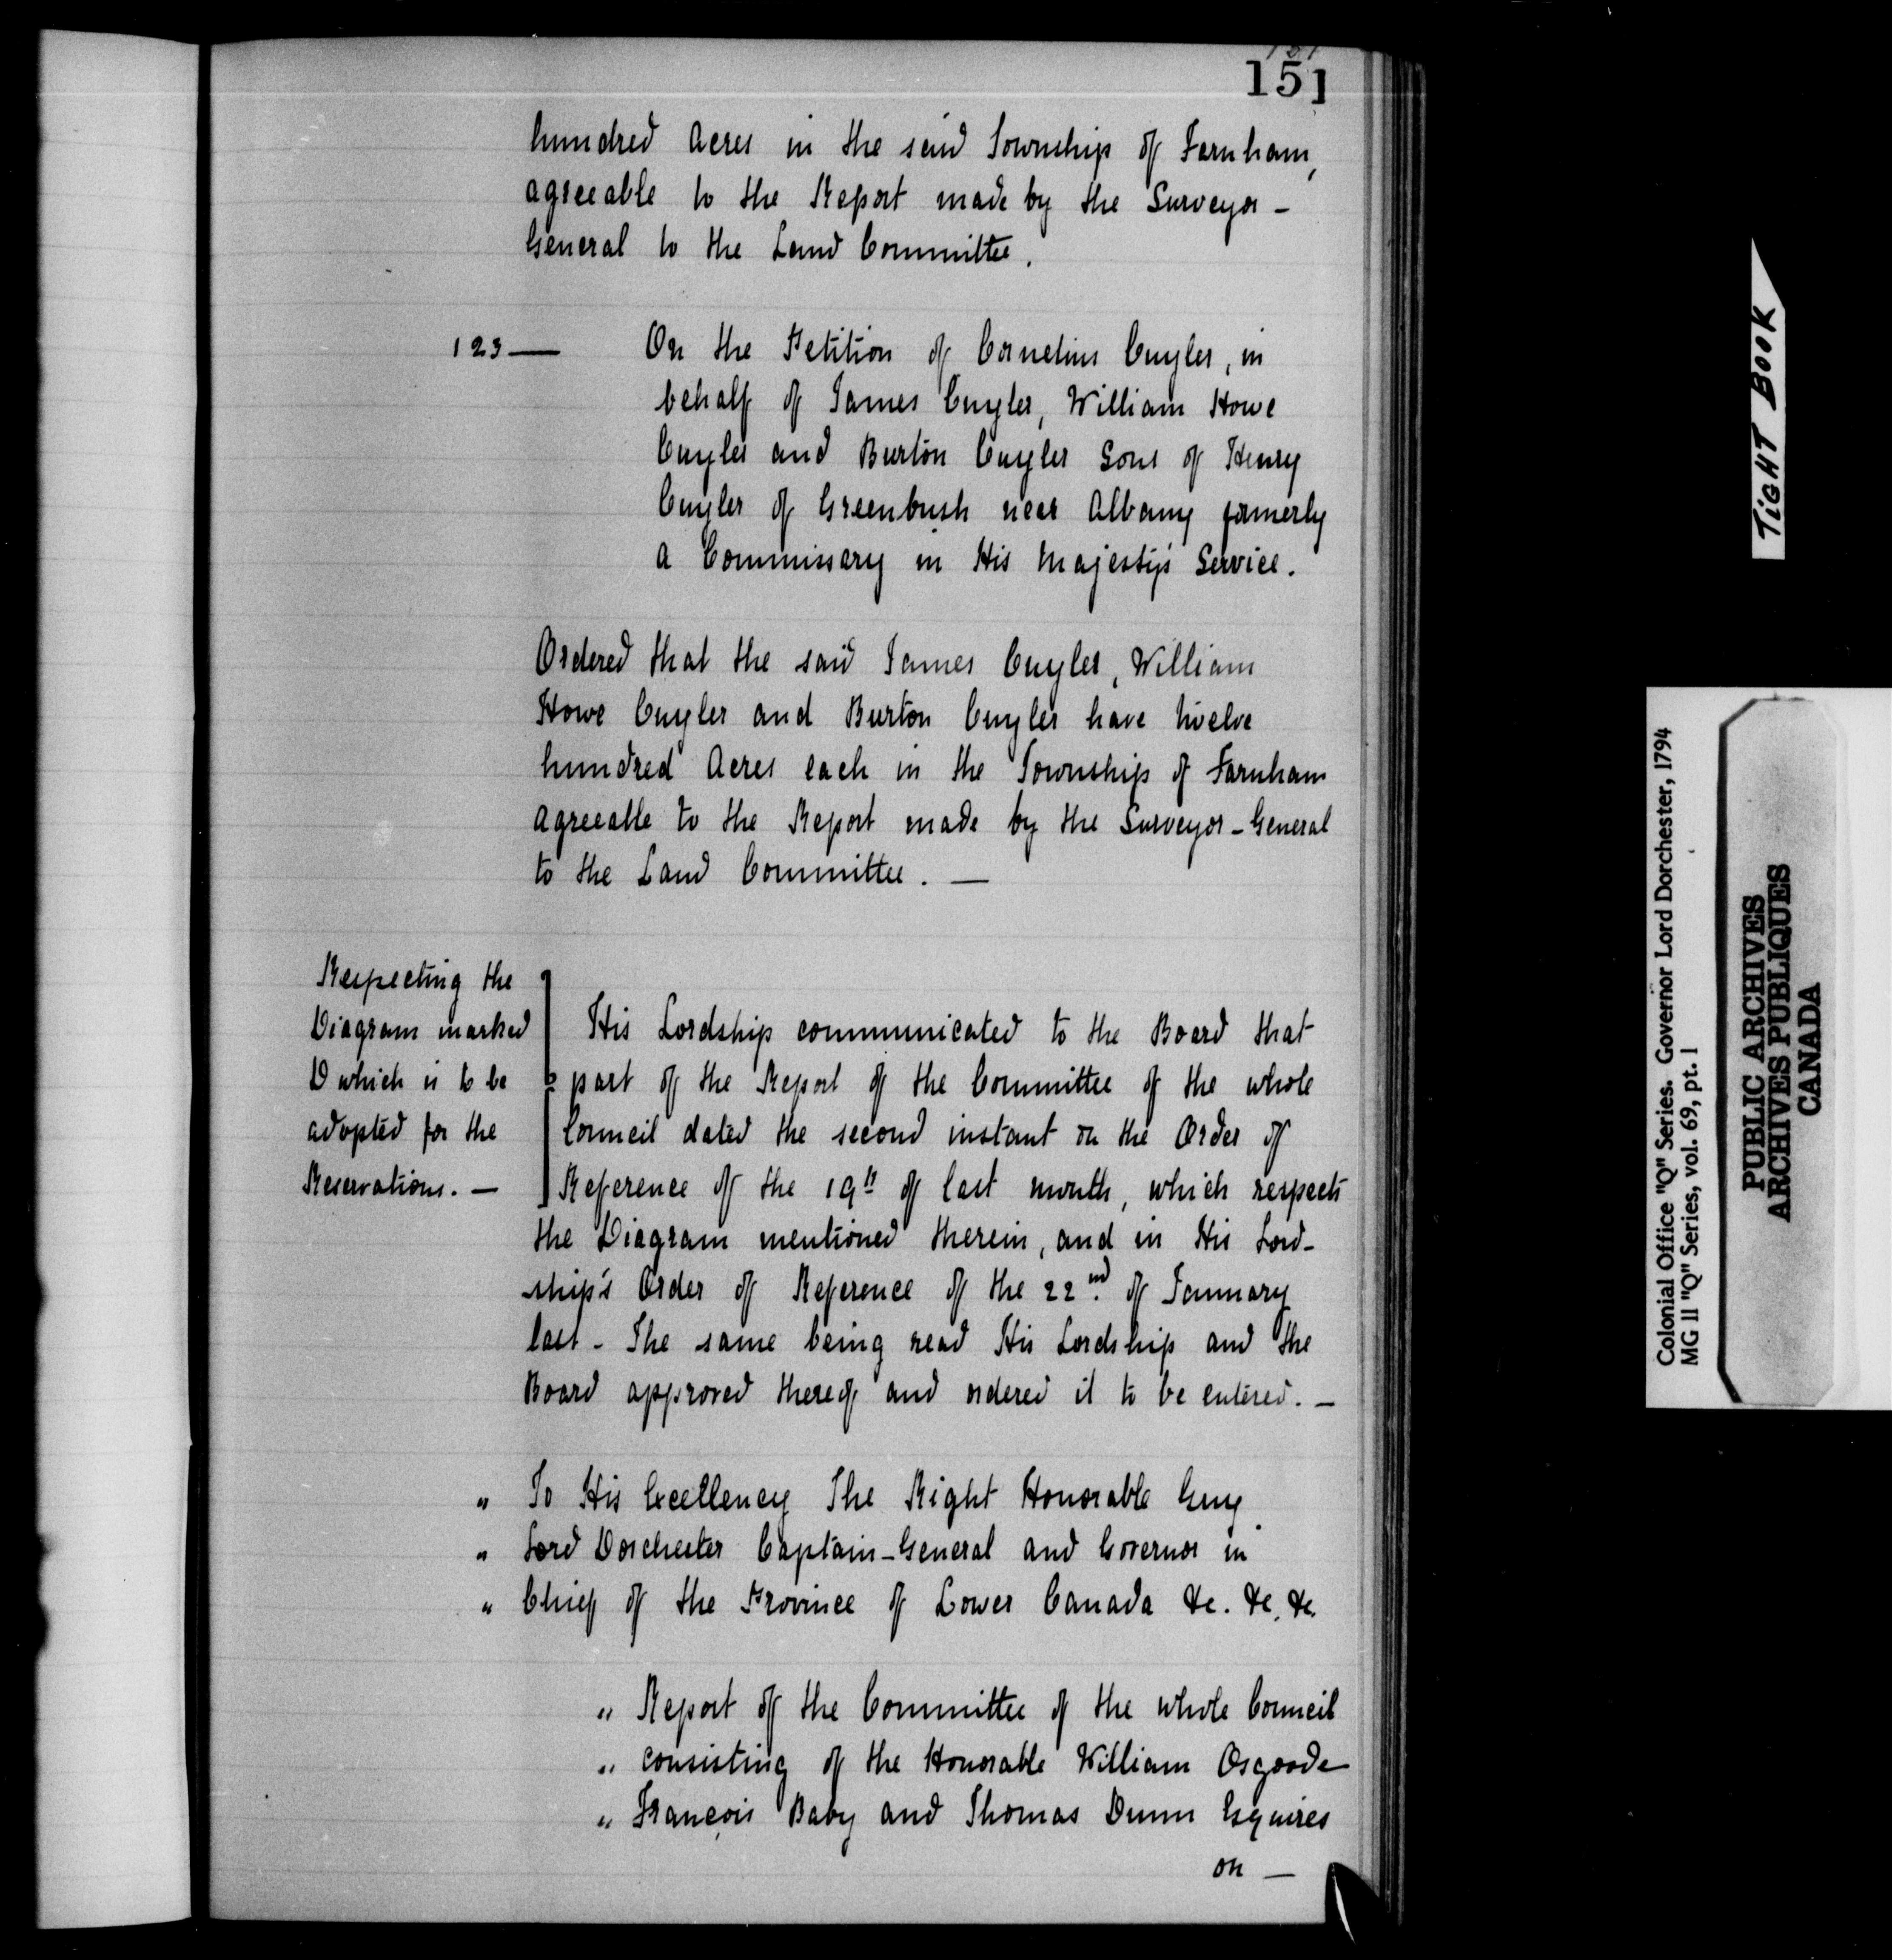 151
151
hundred Acres in the said Township of Farnham,
agreeable to the Report made by the Surveyor -
General to the Land Committee.
123 —
On the Petition of Cornelius Cuyler, in
behalf of James Cuyler, William Howe
Cuyler and Burton Cuyler Sons of Henry
Cuyler of Greenbush near Albany formerly
a Commissary in His Majesty's Service.
Ordered that the said James Cuyler, William
Howe Cuyler and Burton Cuyler have twelve
hundred Acres each in the Township of Farnham
agreeable to the Report made by the Surveyor-General
to the Land Committee. —
Respecting the
Diagram marked
D which is to be
adopted for the
Reservations. —
His Lordship communicated to the Board that
part of the Report of the Committee of the whole
Council dated the second instant on the Order of
Reference of the 19th of last month, which respects
the Diagram mentioned therein, and in His Lord-
ship's Order of Reference of the 22nd. of January
last - The same being read His Lordship and the
Board approved thereof and ordered it to be entered. —
" To His Excellency The Right Honorable Guy
" Lord Dorchester Captain-General and Governor in
" Chief of the Province of Lower Canada &c. &c. &c.
" Report of the Committee of the whole Council
" consisting of the Honorable William Osgoode
" François Baby and Thomas Dunn Esquires
on —
TIGHT BOOK
Colonial Office "Q" Series. Governor Lord Dorchester, 1794
MG 11 "Q" Series, vol. 69, pt. 1
PUBLIC ARCHIVES
ARCHIVES PUBLIQUES
CANADA